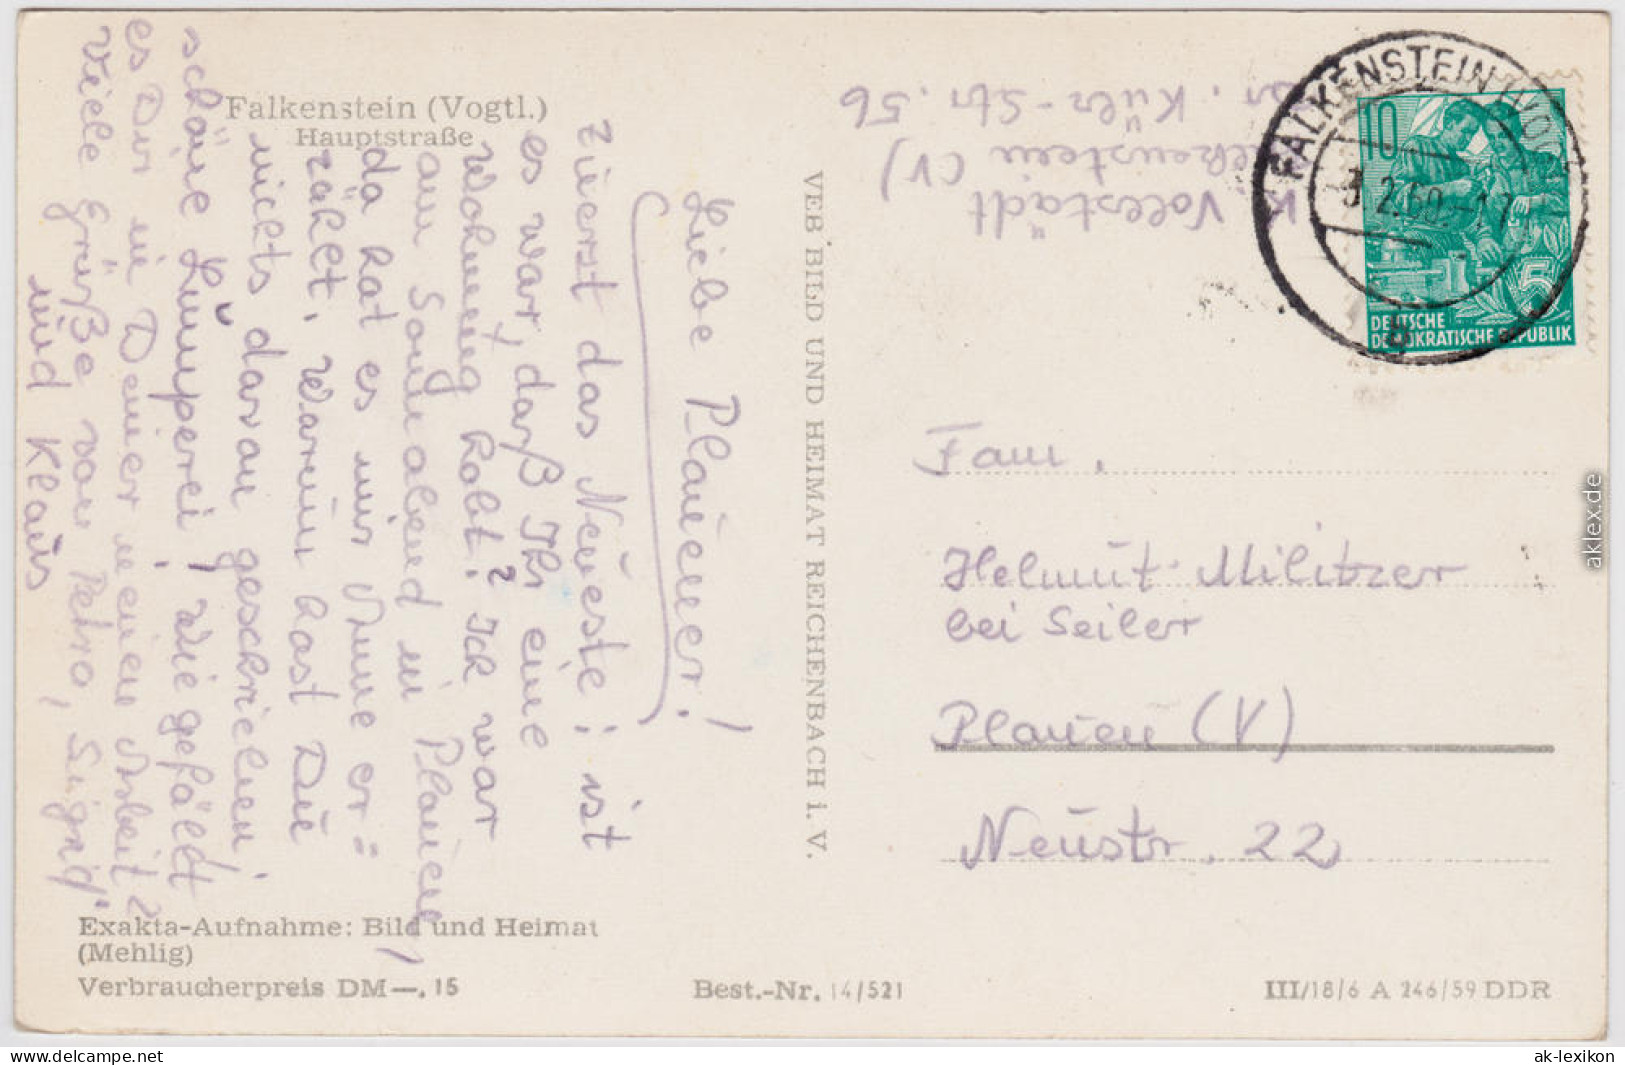 Falkenstein (Vogtl.)
Hauptstraße
Liebe Plauener!
zuerst das Neueste: ist
es war, daß Ihr eine
Wohnung habt? Ich war
am Sonnabend in Plauen,
da hat es mir Anne er=
zählt. Warum hast Du
nichts davon geschrieben,
schöne Lumperei! Wie gefällt
es Dir in Deiner neuen Arbeit?
Viele Grüße von Petra, Sigrid
und Klaus
Exakta-Aufnahme: Bild und Heimat
(Mehlig)
Verbraucherpreis DM—.15
Best.-Nr. 14/521
III/18/6 A 246/59 DDR
VEB BILD UND HEIMAT REICHENBACH i. V.
K Vollstädt
Falkenstein (V)
Str. 56
FALKENSTEIN (VOGTL)
3.2.60.-17
g
10
5
DEUTSCHE
DEMOKRATISCHE REPUBLIK
Fam.
Helmut Militzer
bei Seiler
Plauen (V)
Neustr. 22
aklex.de
www.ansichtskarten-lexikon.de
ak-lexikon